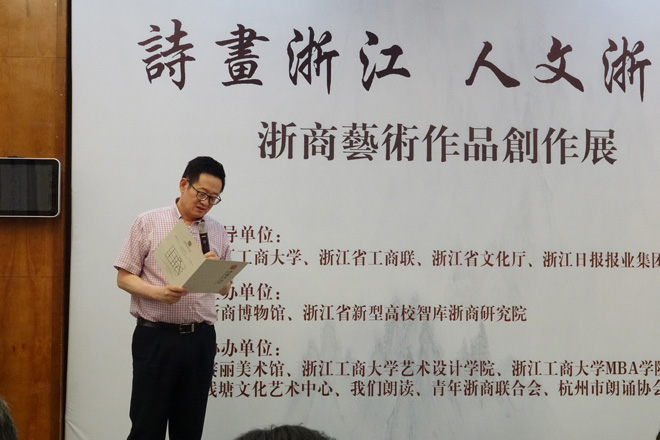 詩畫浙江 人文浙
浙商藝術作品創作展
导单位：
工商大学、浙江省工商联、浙江省文化厅、浙江日报报业集团
办单位：
商博物馆、浙江省新型高校智库浙商研究院
办单位：
丽美术馆、浙江工商大学艺术设计学院、浙江工商大学MBA学院
钱塘文化艺术中心、我们朗读、青年浙商联合会、杭州市朗诵协会